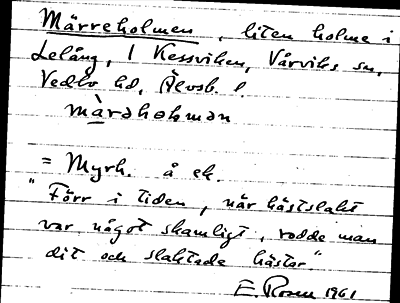 Märreholmen, liten holme i
Lelång, I Kessviken, Vårviks sn,
Vedbo hd, Älvsb. l.
màrəhoḷmən
= Myrh. å ek.
"Förr i tiden, när hästslakt
var något skamligt, rodde man
dit och slaktade hästar"
E. Rosen 1961